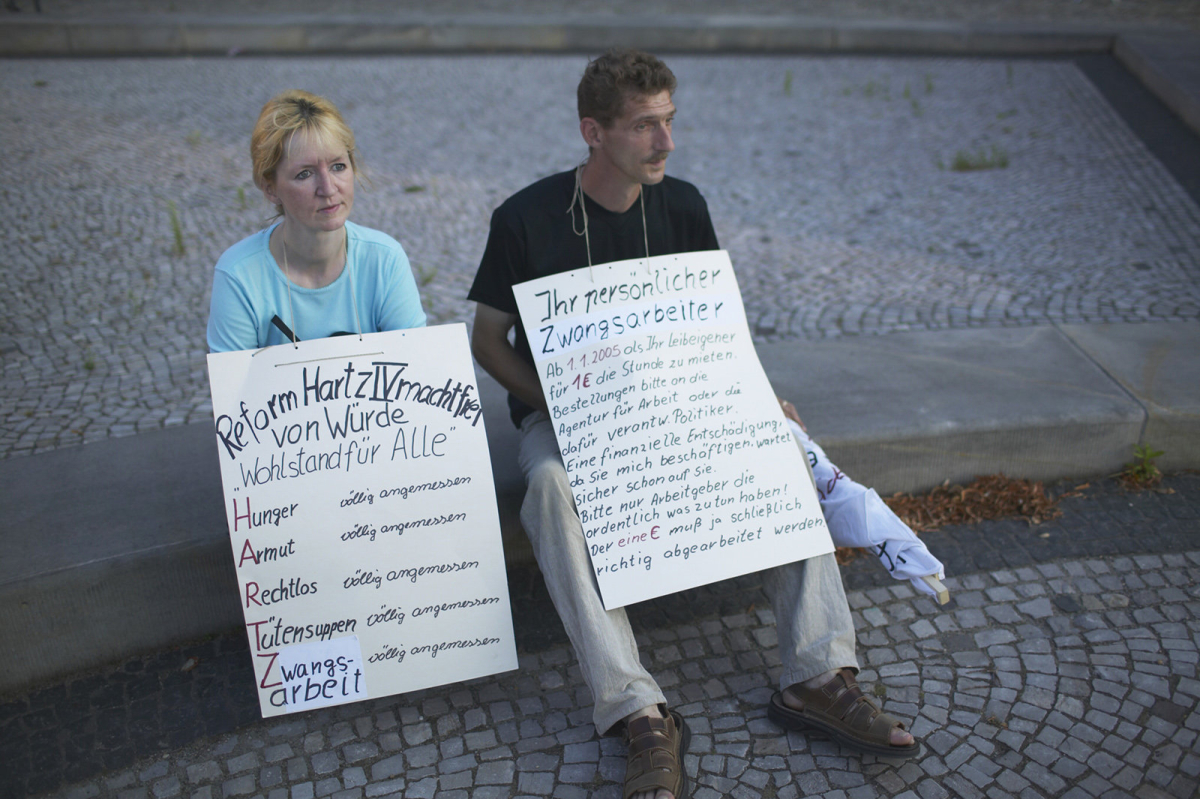 Reform Hartz IV macht frei
von Würde
"Wohlstand für Alle"
Hunger völlig angemessen
Armut völlig angemessen
Rechtlos völlig angemessen
Tütensuppen völlig angemessen
Zwangs- völlig angemessen
arbeit
Ihr persönlicher
Zwangsarbeiter
Ab 1.1.2005 als Ihr Leibeigener
für 1€ die Stunde zu mieten.
Bestellungen bitte an die
Agentur für Arbeit oder die
dafür verantw. Politiker.
Eine finanzielle Entschädigung,
da Sie mich beschäftigen, wartet
sicher schon auf Sie.
Bitte nur Arbeitgeber die
ordentlich was zu tun haben!
Der eine € muß ja schließlich
richtig abgearbeitet werden